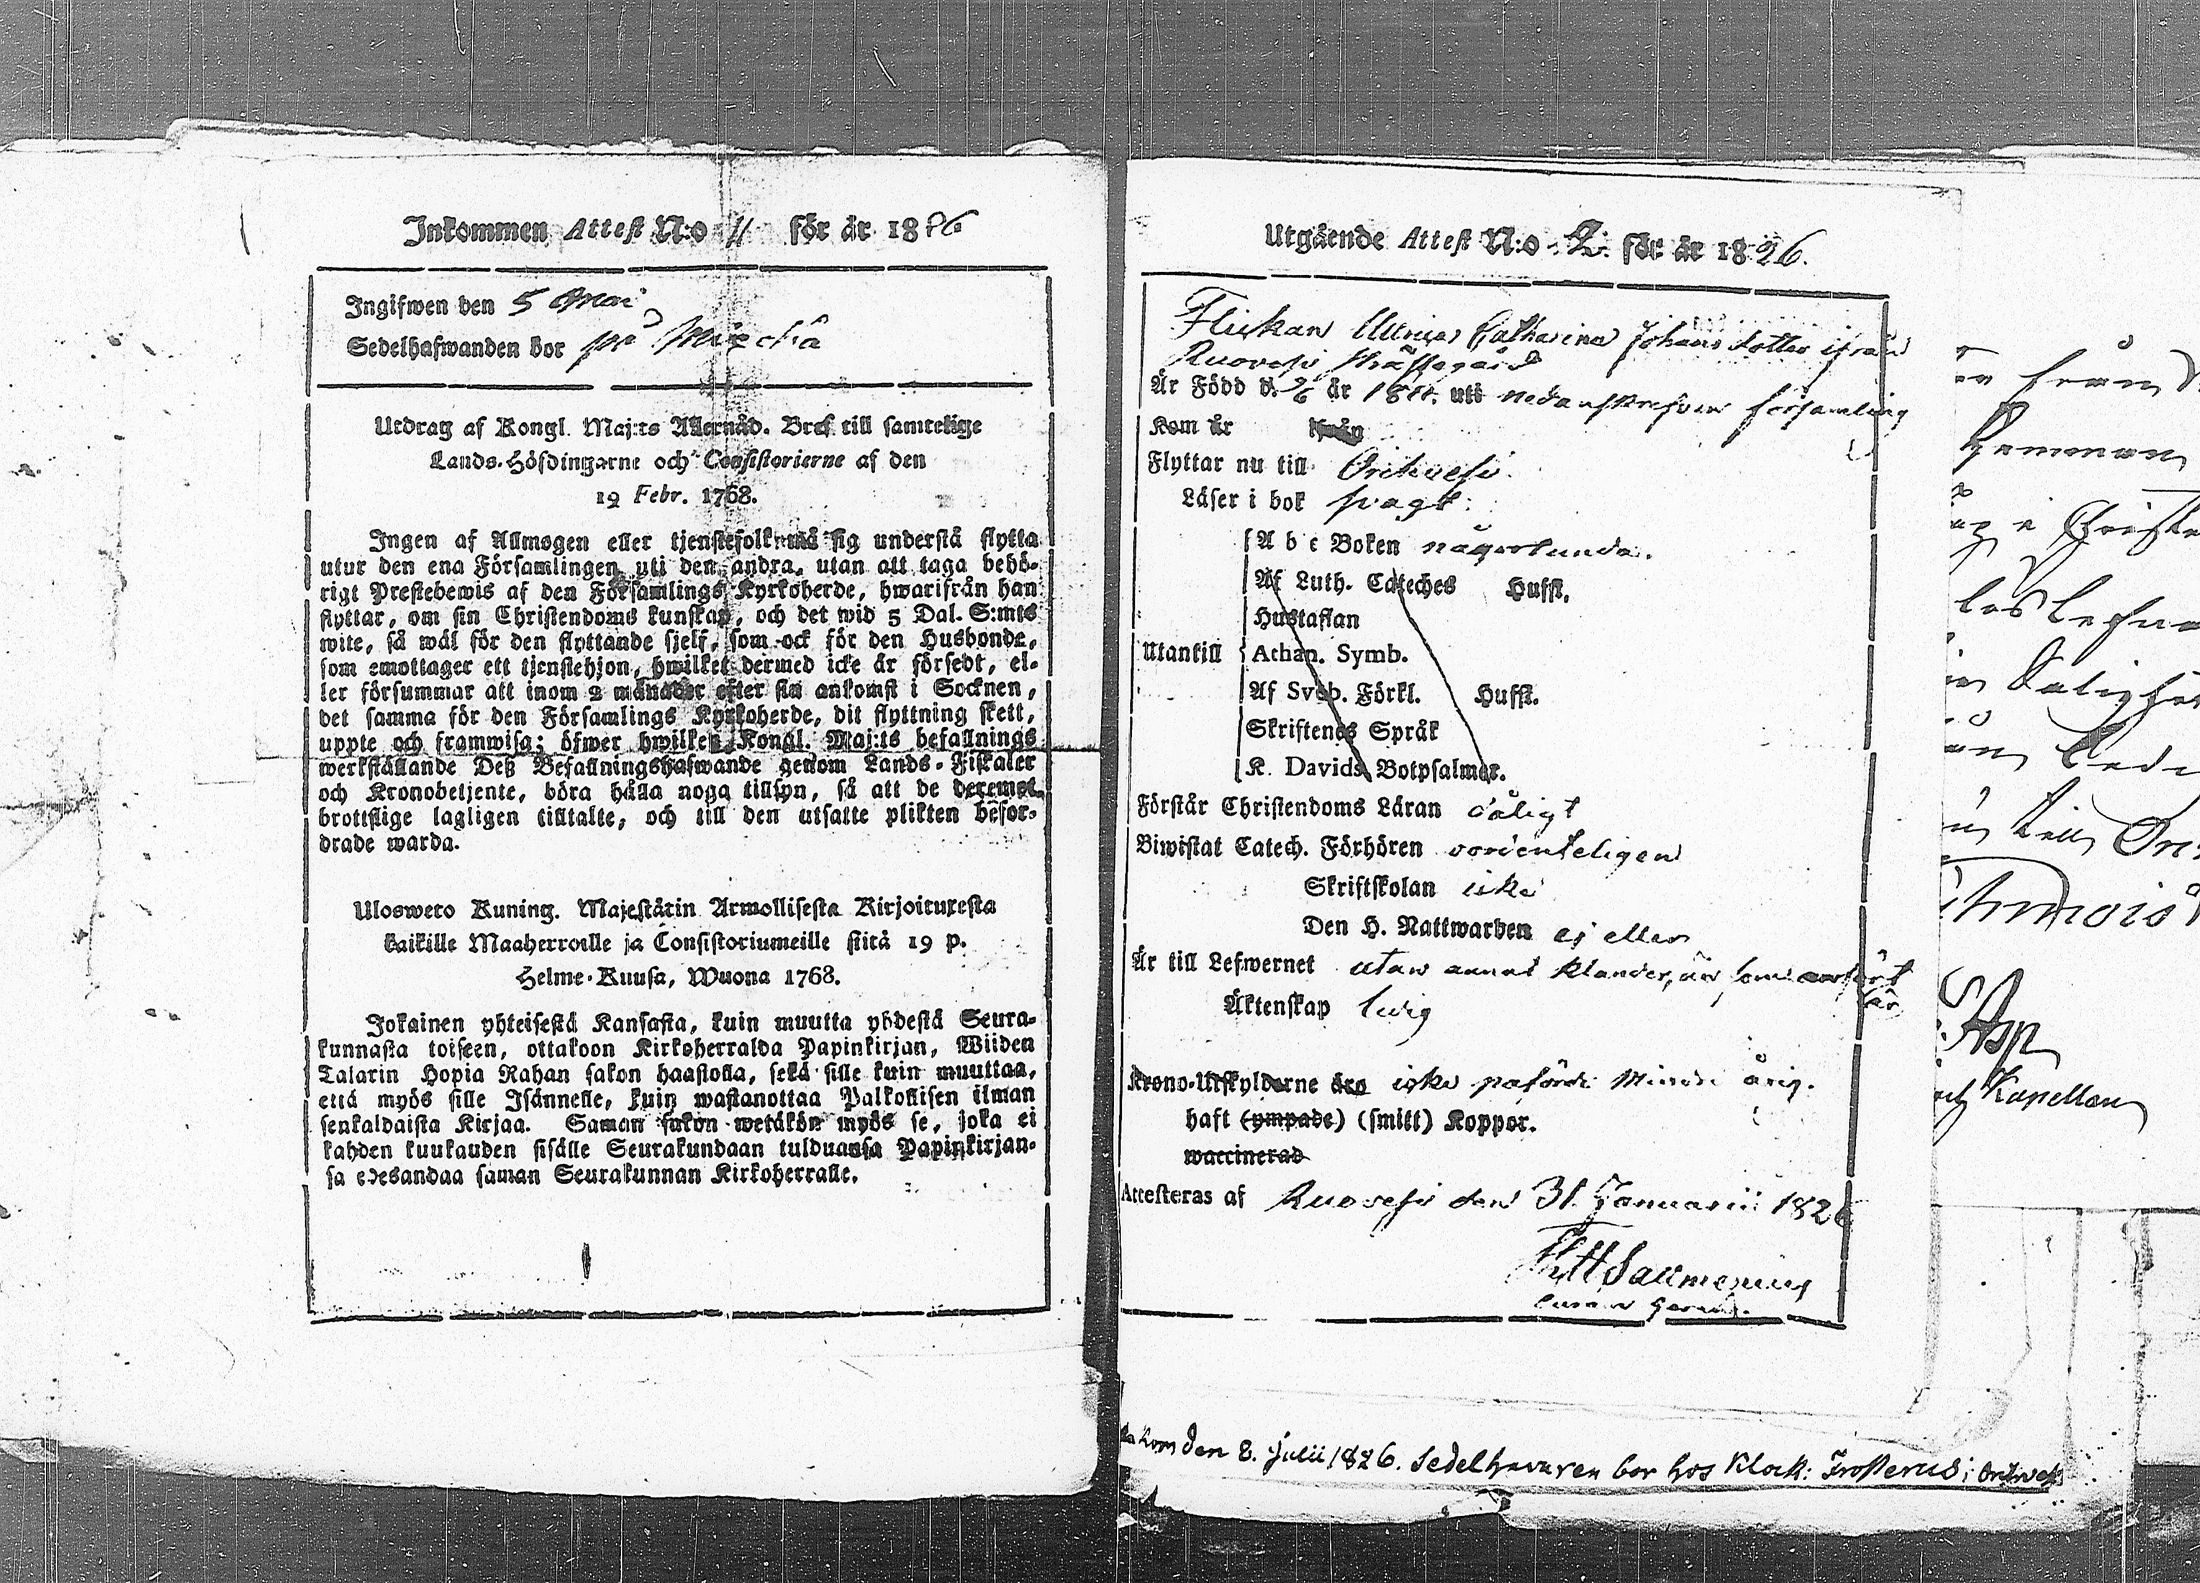 Inkommen Attest N:o 11 för år 1826
Ingifwen den 5 Maii
Sedelhafwanden bor på
Utdrag af Kongl. Maj:ts Allernåd. Bref till samtelige
Lands-Höfdingarne och Consistorierne af den
19 Febr. 1768.
Ingen af Allmogen eller tjenstefolk må sig understå flytta
utur den ena Församlingen uti den andra, utan att taga behö-
rigt Prestebewis af den Församlings Kyrkoherde, hwarifrån han
flyttar, om sin Christendoms kunskap, och det wid 5 Dal. S:mts
wite, så wäl för den flyttande sjelf, som ock för den Husbonde,
som emottager ett tjenstehjon, hwilket dermed icke är försedt, el-
ler försummar att inom 2 månader efter sin ankomst i Socknen,
det samma för den Församlings Kyrkoherde, dit flyttning skett,
uppte och framwisa; öfwer hwilken Kongl. Maj:ts befallnings
werkställande Deß Befallningshafwande genom Lands-Fiskaler
och Kronobetjente, böra hålla noga tillsyn, så att de deremot
brottslige lagligen tilltalte, och till den utsatte plikten befor-
drade warda.
Ulosweto Kuning. Majestätin Armollisesta Kirjoituxesta
kaikille Maaherroille ja Consistoriumeille siitä 19 p.
Helme-Kuusa, Wuona 1768.
Jokainen yhteisestä Kansasta, kuin muutta yhdestä Seura-
kunnasta toiseen, ottakoon Kirkoherralda Papinkirjan, Wiiden
Talarin Hopia Rahan sakon haastolla, sekä sille kuin muuttaa,
että myös sille Isännelle, kuin wastanottaa Palkollisen ilman
senkaldaista Kirjaa. Saman sakon wetäkön myös se, joka ei
kahden kuukauden sisälle Seurakundaan tulduansa Papinkirjan-
sa edesandaa saman Seurakunnan Kirkoherralle.
Utgående Attest N:o 2. för år 1826.
Flickan Ulrica Catharina Johans dotter ifrån
Ruovesi Prästegård
Är Född d. 26 år 1811. uti nedanskrefven församling
Kom år från
Flyttar nu till Orihvesi.
Läser i bok svagt.
A b c Boken någorlunda.
Af Luth. Cateches Hufst.
Hustaflan
Utantill Athan. Symb.
Af Sveb. Förkl. Hufst.
Skriftenes Språk
K. Davids Botpsalmer.
Förstår Christendoms Läran dåligt
Biwistat Catech. Förhören ordenteligen
Skriftskolan icke
Den H. Nattwarden ej eller
Är till Lefwernet utan annat klander, än som anfört
är
Äktenskap ledig
Krono-Utskylderne äro icke påförde Minde årig.
haft (ympade) (smitt) Koppor.
waccinerad
Attesteras af Ruovesi den 31. Januarii 1826
Sallmenius
kom den 8. Julii 1826. Sedelhavaren bor hos Klock: i Orihves.
från
i Christe
Salighet
till Ori
Asp
Kapellan